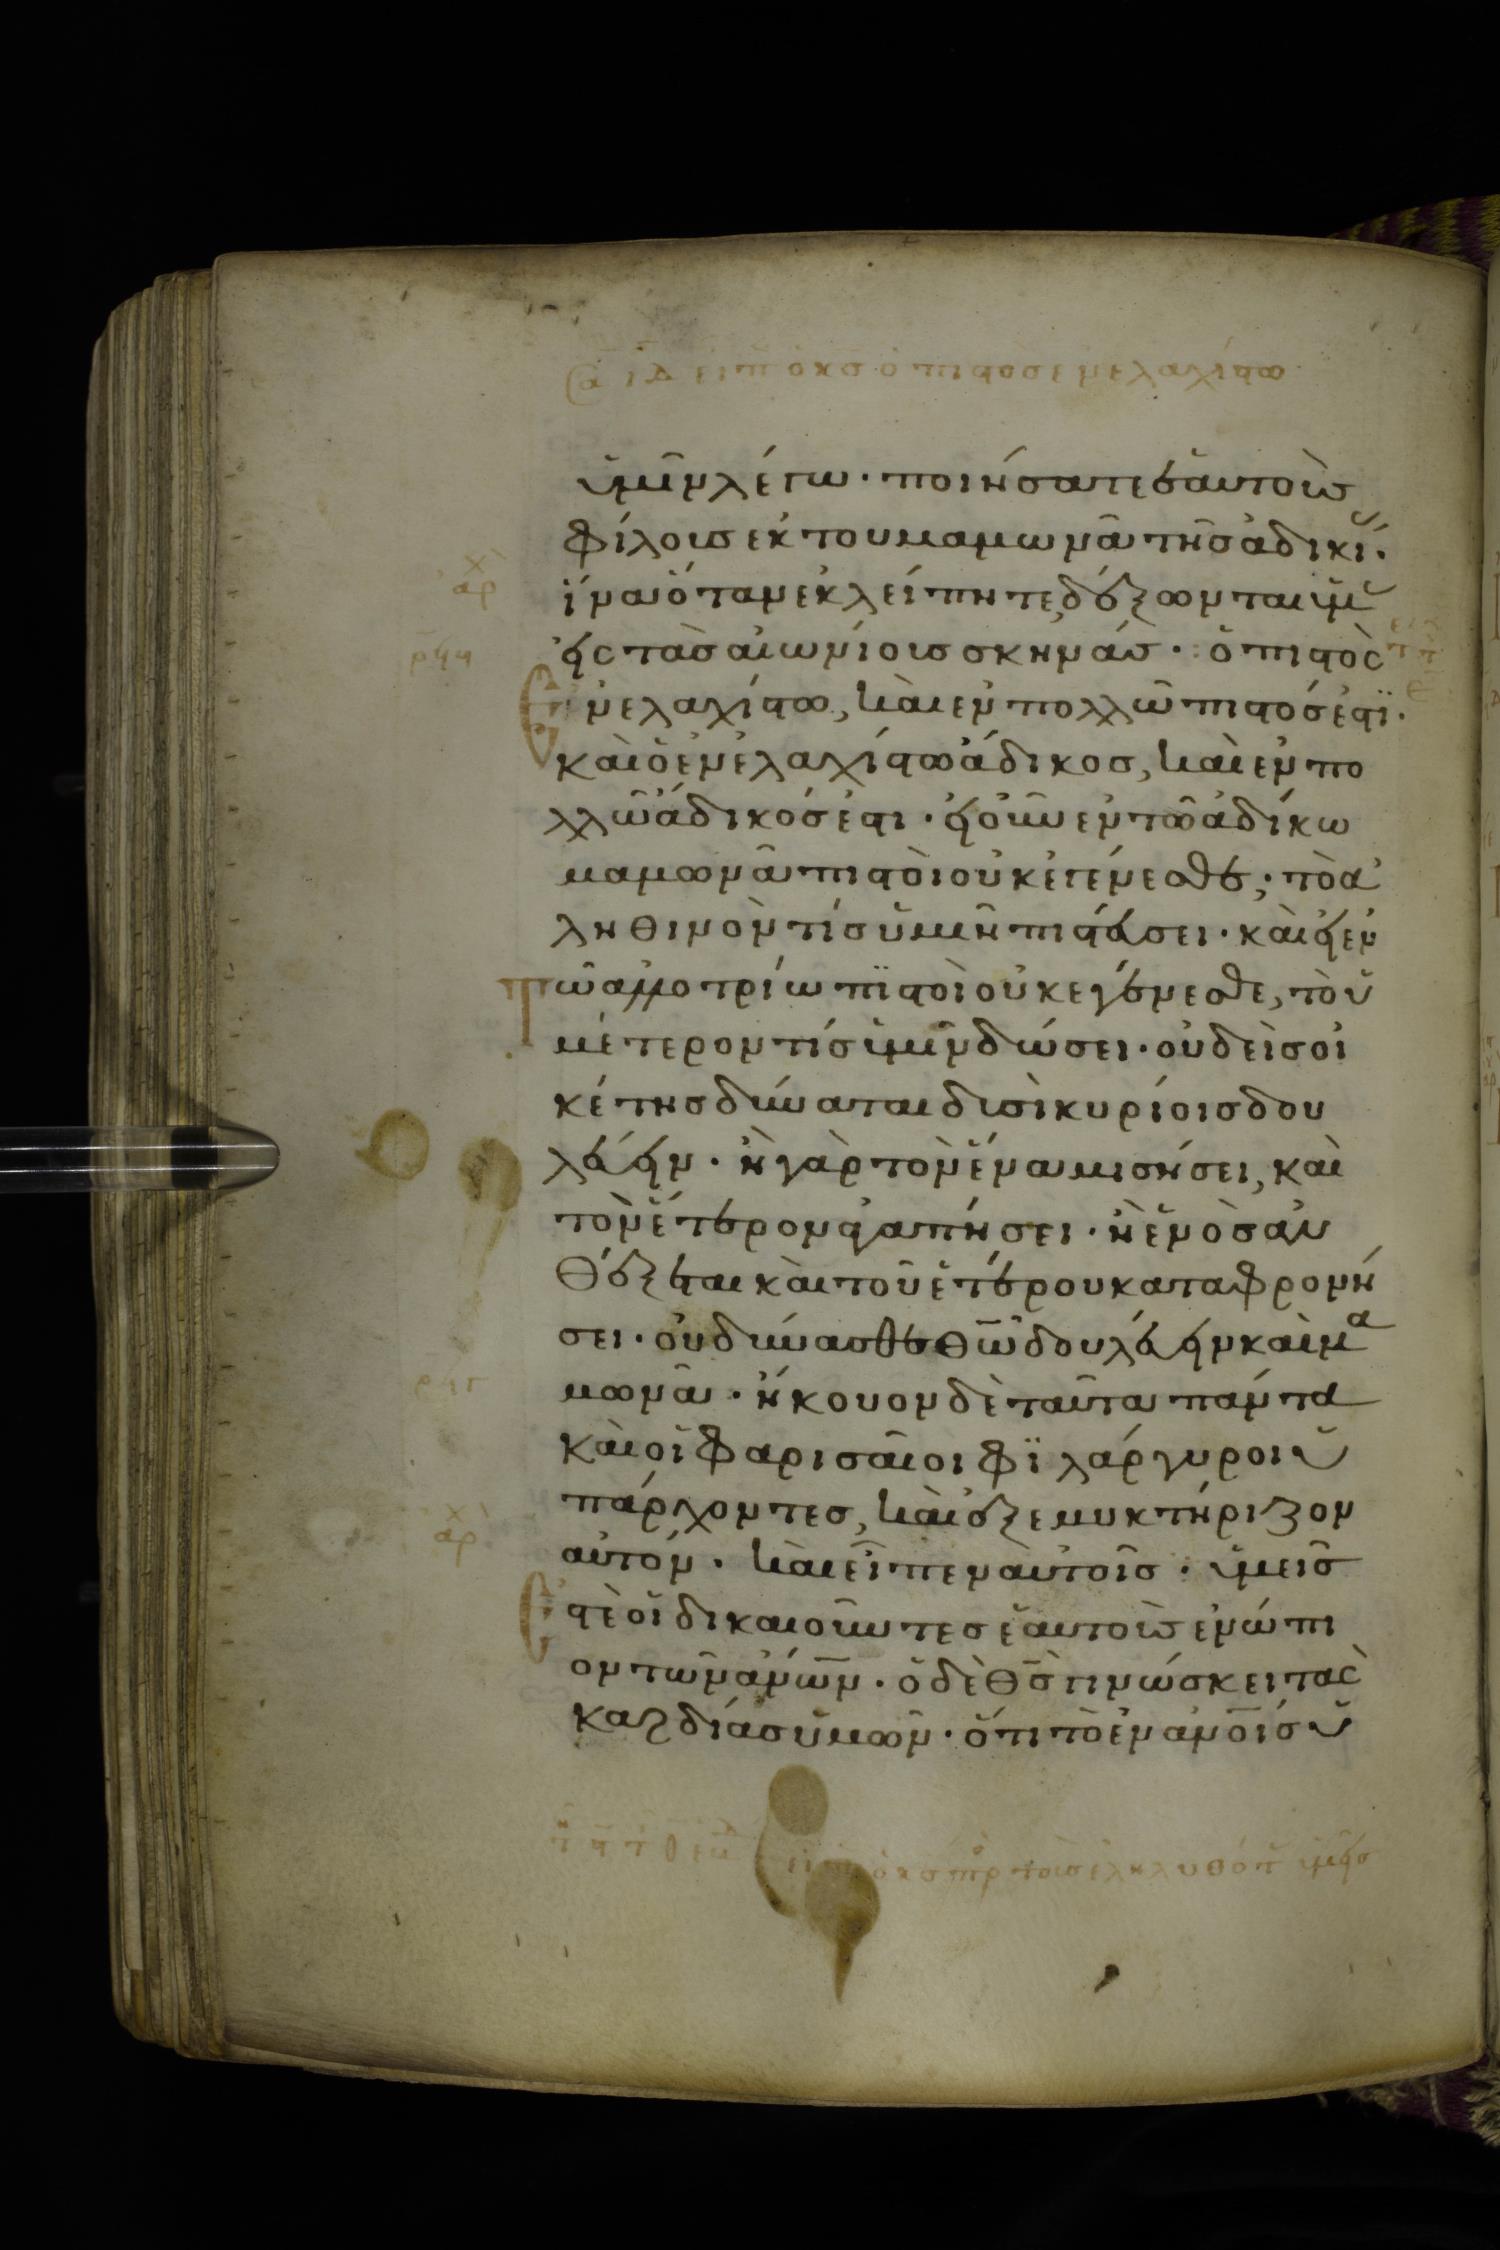 ὑμῖν λέγω · ποιήσατε ἑαυτοῖς
φίλοις ἐκ τοῦ μαμωνᾶ τῆς ἀδικί ·
ἵνα ὅταν ἐκλείπητε δέξωνται ὑμ
εἰς τὰς αἰωνίοις σκηνάς · ὁ πιστὸς
ἐν ἐλαχίστω, καὶ ἐν πολλῶ πιστός ἐστϊ ·
καὶ ὁ ἐν ἐλαχίστω ἄδικος, καὶ ἐν πο
λλῶ ἄδικός ἐστι · εἰ οὖν ἐν τῶ ἀδίκω
μαμωνᾶ πιστοὶ οὐκ ἐγένεσθε · τὸ ἀ
ληθινὸν τίς ὑμῖν πιστεύσει · καὶ εἰ ἐν
τῶ ἀλλοτρίω πϊστοὶ οὐκ ἐγένεσθε, τὸ ὑ
μέτερον τίς ὑμῖν δώσει · οὐδεὶς οἰ
κέτης δύναται δυσὶ κυρίοις δου
λεύειν · ἢ γὰρ τὸν ἕνα μισήσει, καὶ
τὸν ἕτερον ἀγαπήσει · ἢ ἑνὸς ἀν
θέξεται καὶ τοῦ ἑτέρου καταφρονή
σει · οὐ δύνασθε θῶ δουλεύειν καὶ μα
μωνᾶ · ἤκουον δὲ ταῦτα πάντα
καὶ οἱ φαρισαῖοι φϊλάργυροι ὑ
πάρχοντες, καὶ ἐξεμυκτήριζον
αὐτόν · καὶ εἶπεν αὐτοῖς · ὑμεῖς
ἐστὲ οἱ δικαιοῦντες ἑαυτοὺς ἐνώπι
ον τῶν ἀνων · ὁ δὲ θς γινώσκει τὰς
καρδίας ὑμῶν · ὅτι τὸ ἐν ἀνοις ὑ